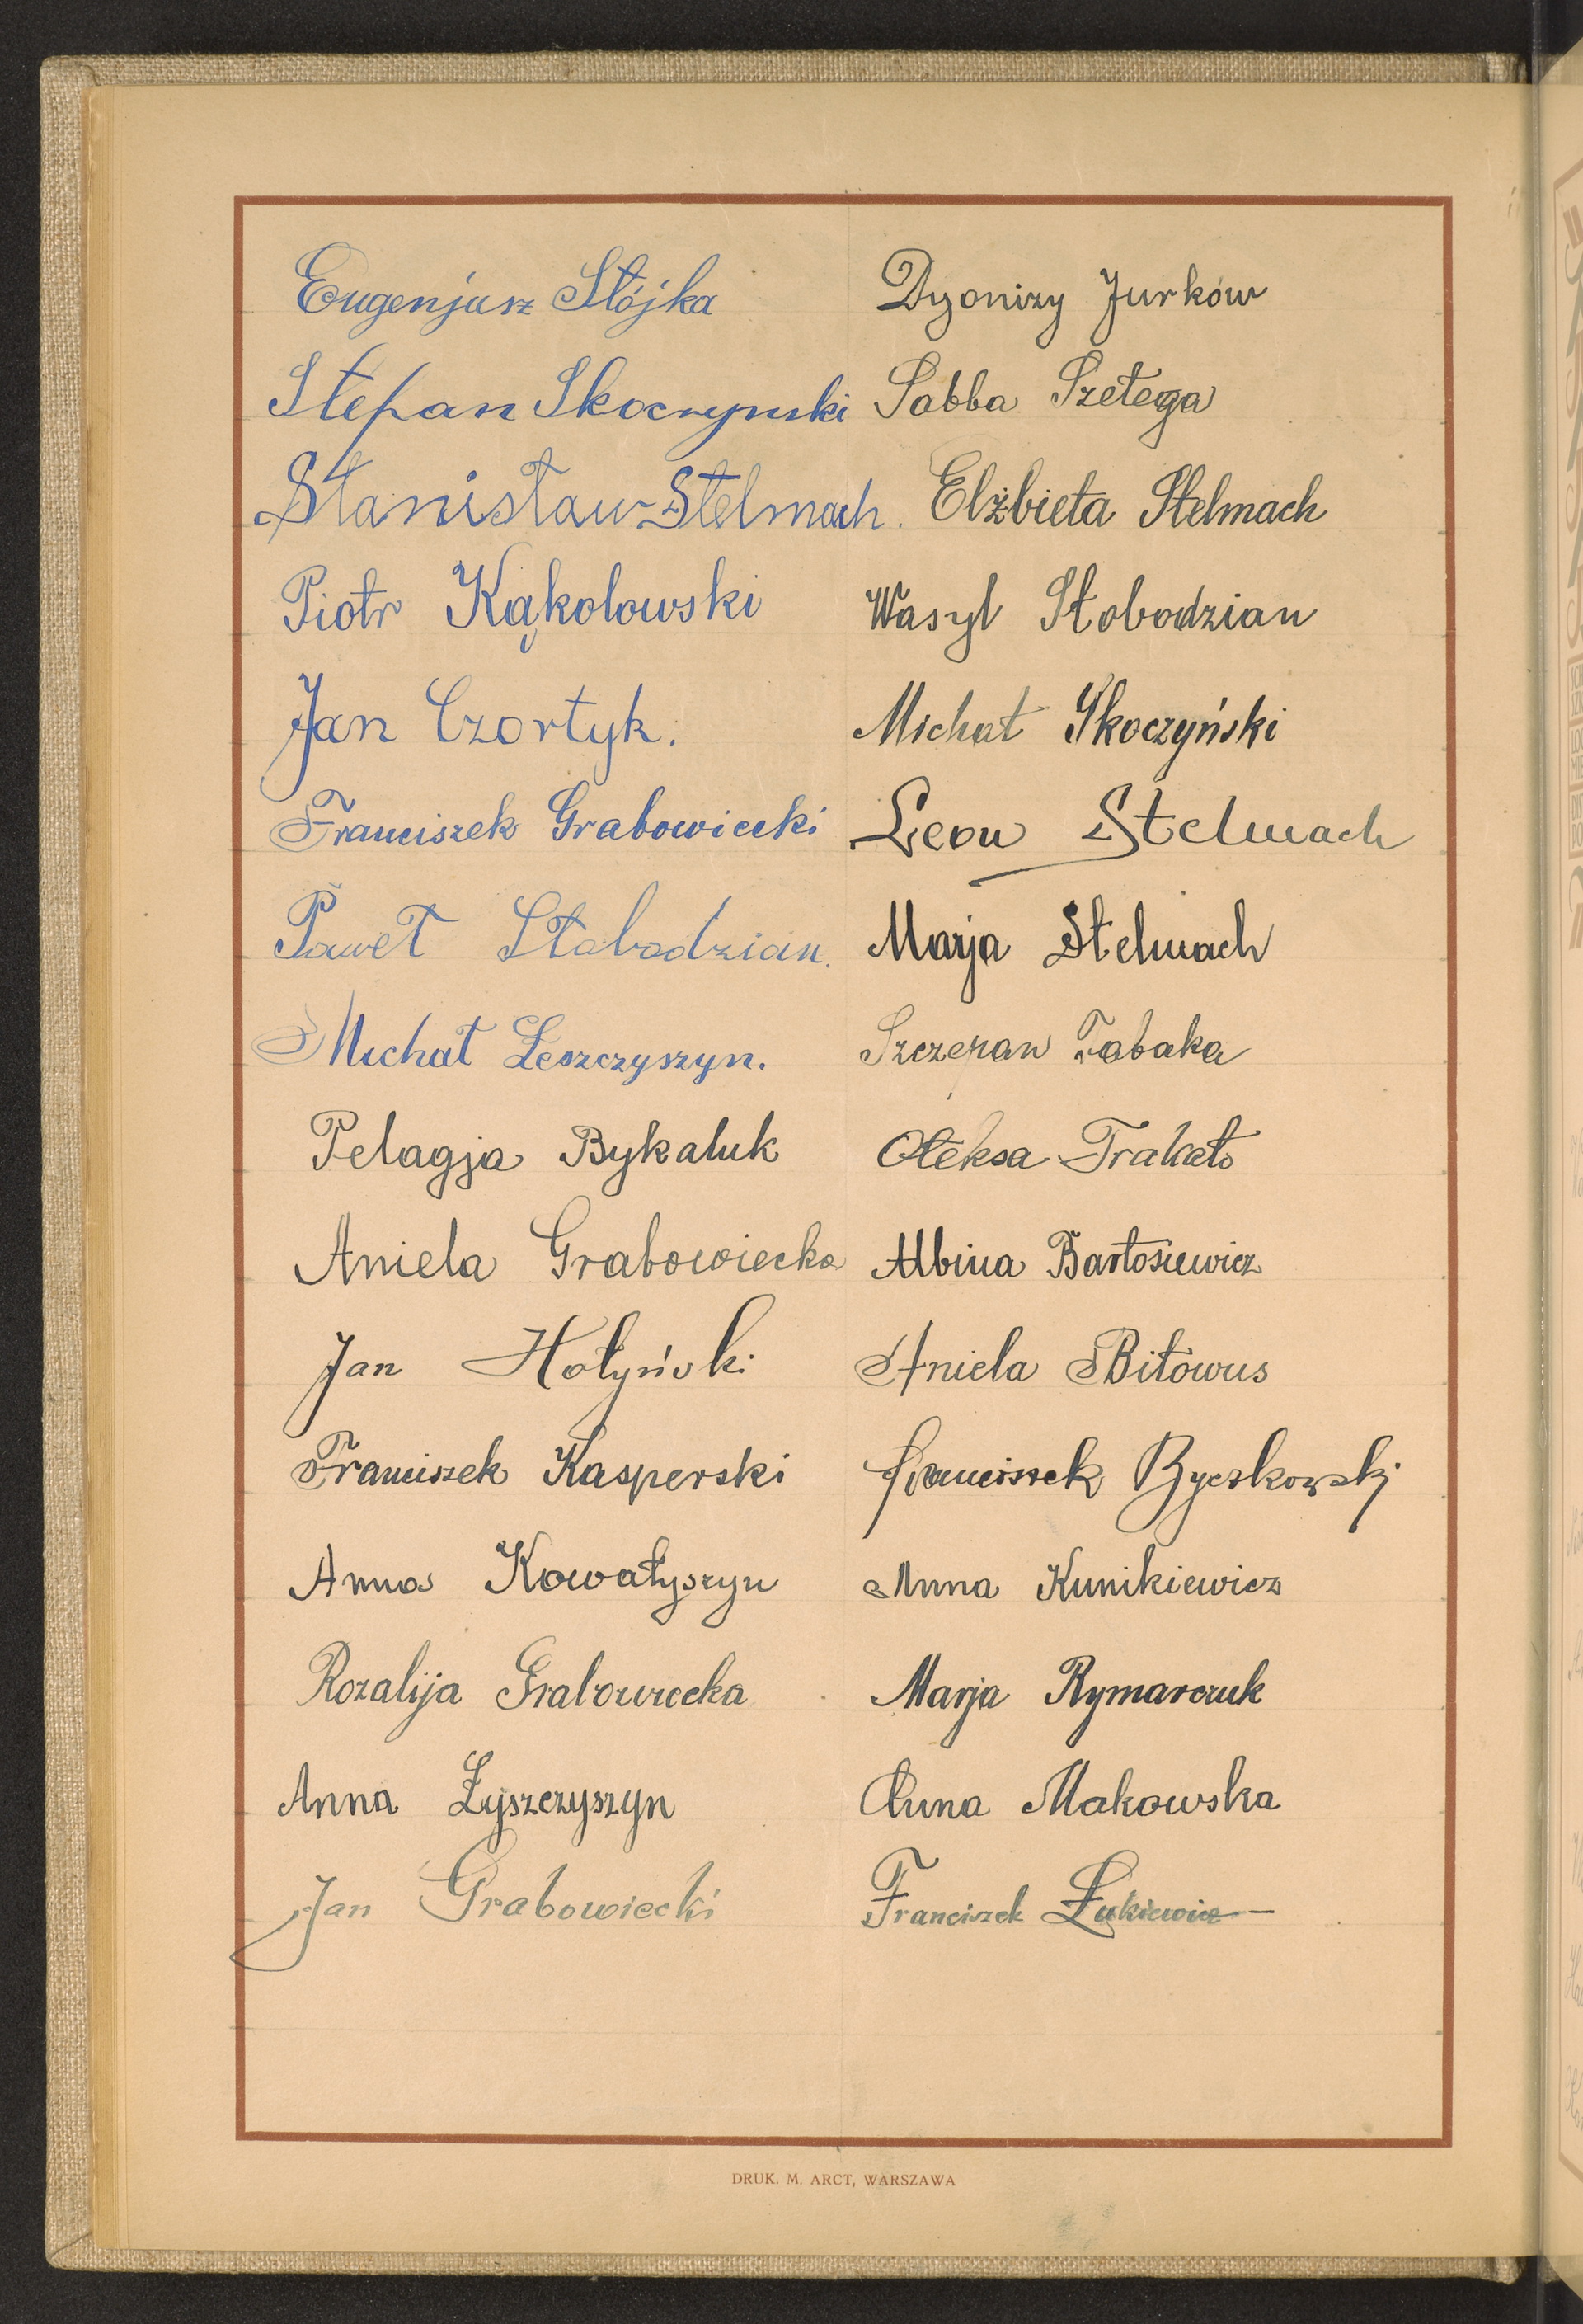 Eugenjusz Stójka
Stefan Skoczynski
Stanisław Stelmach.
Piotr Kąkolowski
Jan Czortyk.
Franciszek Grabowiecki
Paweł Słabodzian.
Michał Leszczyszyn.
Pelagja Bykaluk
Aniela Grabowiecka
Jan Hołyński
Franciszek Kasperski
Anna Kowałyszyn
Rozalija Grabowiecka
Anna Łyszczyszyn
Jan Grabowiecki
Dyonizy Jurków
Sabba Szetega
Elżbieta Stelmach
Wasyl Słobodzian
Michał Skoczyński
Leon Stelmach
Marja Stelmach
Szczepan Tabaka
Ołeksa Trakało
Albina Bartosiewicz
Aniela Bitowus
Franciszek Byczkowski
Anna Kunikiewicz
Marja Rymarczuk
Anna Makowska
Franciszek Łukiewicz
DRUK. M. ARCT, WARSZAWA